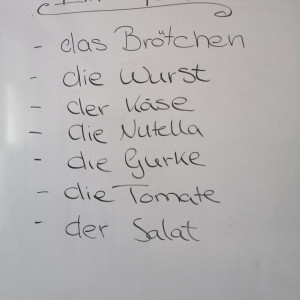 - das Brötchen
- die Wurst
- der Käse
- die Nutella
- die Gurke
- die Tomate
- der Salat